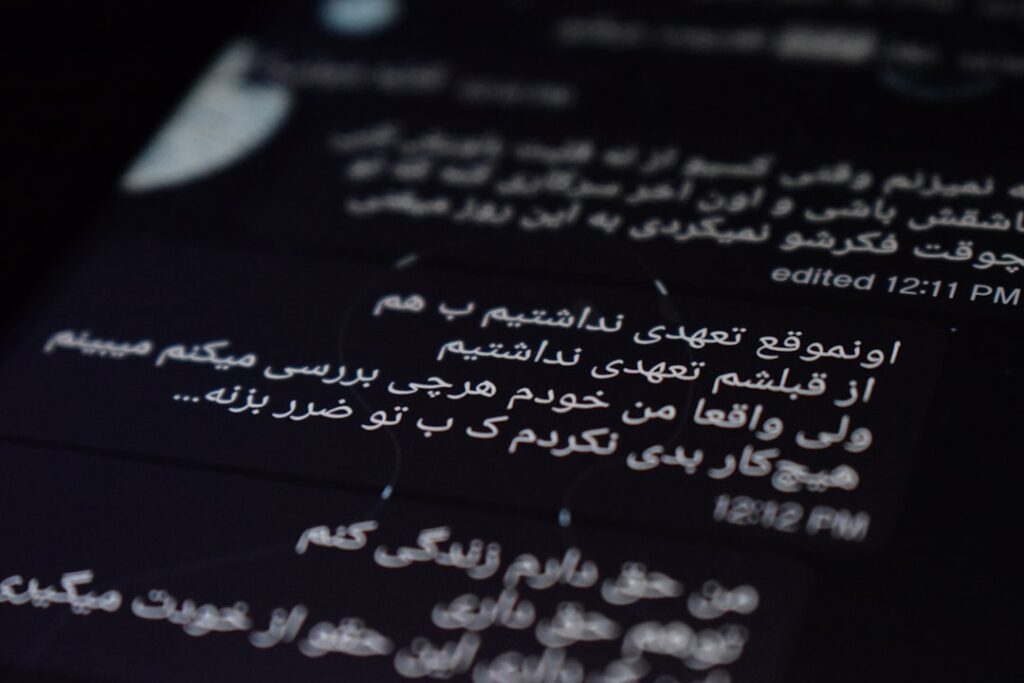 نمیزنم وقتی کسیو از ته قلبت
باشی و اون آخر سرکاری کنه که تو
فکرشو نمیکردی به این روز
edited 12:11 PM
اونموقع تعهدی نداشتیم ب هم
از قبلشم تعهدی نداشتیم
ولی واقعا من خودم هرچی بررسی میکنم میبینم
هیچکار بدی نکردم ک ب تو ضرر بزنه...
12:12 PM
من حق دارم زندگی کنم
توهم حق داری
داری این حقو از خودت میگیری